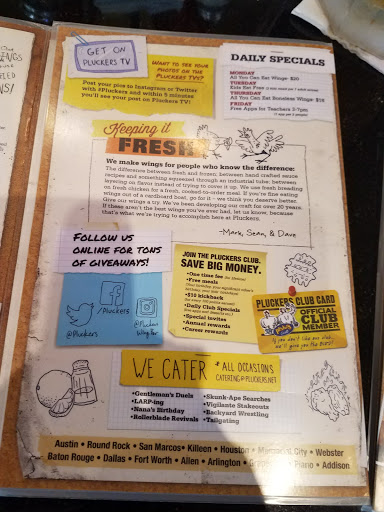 GET ON
PLUCKERS TV
WANT TO SEE YOUR
PHOTOS ON THE
PLUCKERS TVS?
Post your pics to Instagram or Twitter
with #Pluckers and within 5 minutes
you'll see your post on Pluckers TV!
DAILY SPECIALS
MONDAY
All You Can Eat Wings
TUESDAY
Kids Eat Free
THURSDAY
All You Can Eat Boneless Wings
FRIDAY
Free Apps for Teachers 3-7pm
Keeping it
FRESH
We make wings for people who know the difference:
The difference between fresh and frozen, between hand crafted sauce
recipes and something squeezed through an industrial tube, between
layering on flavor instead of trying to cover it up. We use fresh breading
on fresh chicken for a fresh, cooked-to-order meal. If you're fine eating
wings out of a cardboard box, go for it - we think you deserve better.
Give our wings a try. We've been developing our craft for over 20 years.
If these aren't the best wings you've ever had, let us know, because
that's what we're trying to accomplish here at Pluckers.
-Mark, Sean, & Dave
FOLLOW US
ONLINE FOR TONS
OF GIVEAWAYS!
/Pluckers
@Pluckers
@Pluckers
WingBar
JOIN THE PLUCKERS CLUB.
SAVE BIG MONEY.
•One time fee
•Free meals
•$10 kickback
•Daily Club Specials
•Special invites
•Annual rewards
•Career rewards
PLUCKERS CLUB CARD
OFFICIAL
CLUB
MEMBER
If you don't like our club,
we'll give you the bird!
WE CATER * ALL OCCASIONS
CATERING@PLUCKERS.NET
•Gentleman's Duels
•LARP-ing
•Nana's Birthday
•Rollerblade Revivals
•Skunk-Ape Searches
•Vigilante Stakeouts
•Backyard Wrestling
•Tailgating
Austin • Round Rock • San Marcos • Killeen • Houston • Memorial City • Webster
Baton Rouge • Dallas • Fort Worth • Allen • Arlington • Plano • Addison